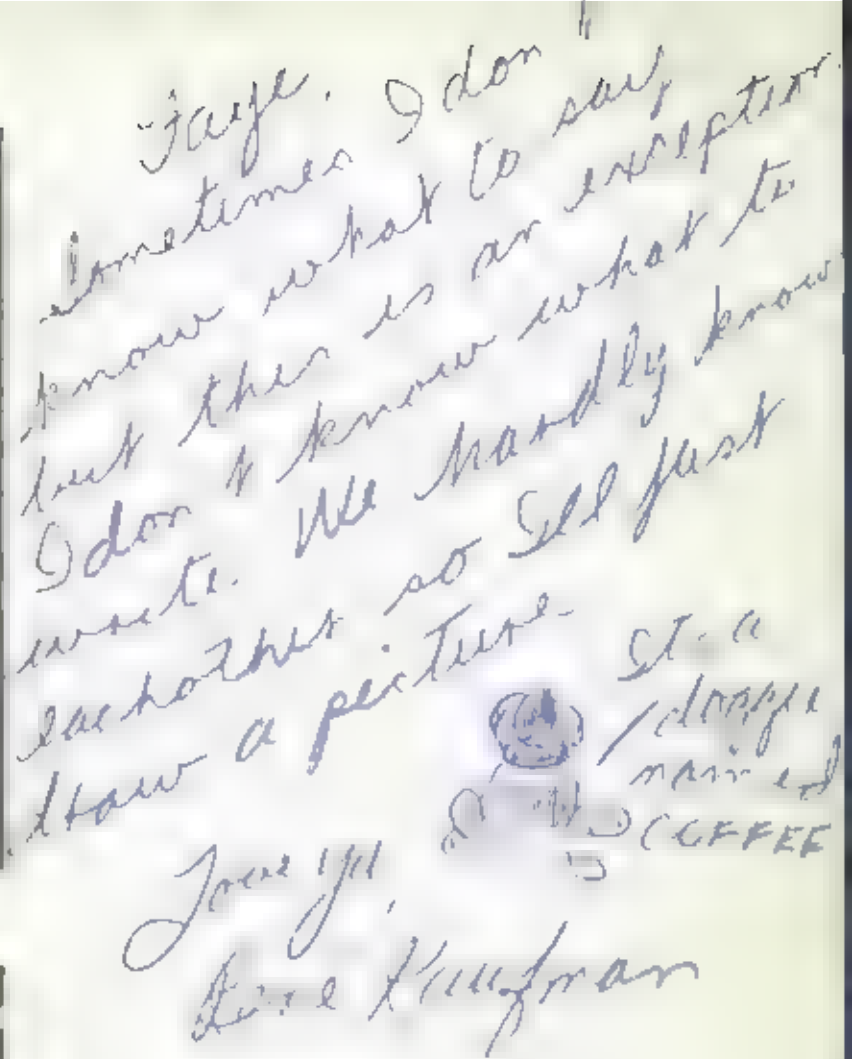 Faye, I don't
sometimes
know what to say
but this is an exception.
I don't know what to
write. We hardly know
eachother so I'll just
draw a picture.
It's a
doggie
named
COFFEE
Love ya,
Kaufman